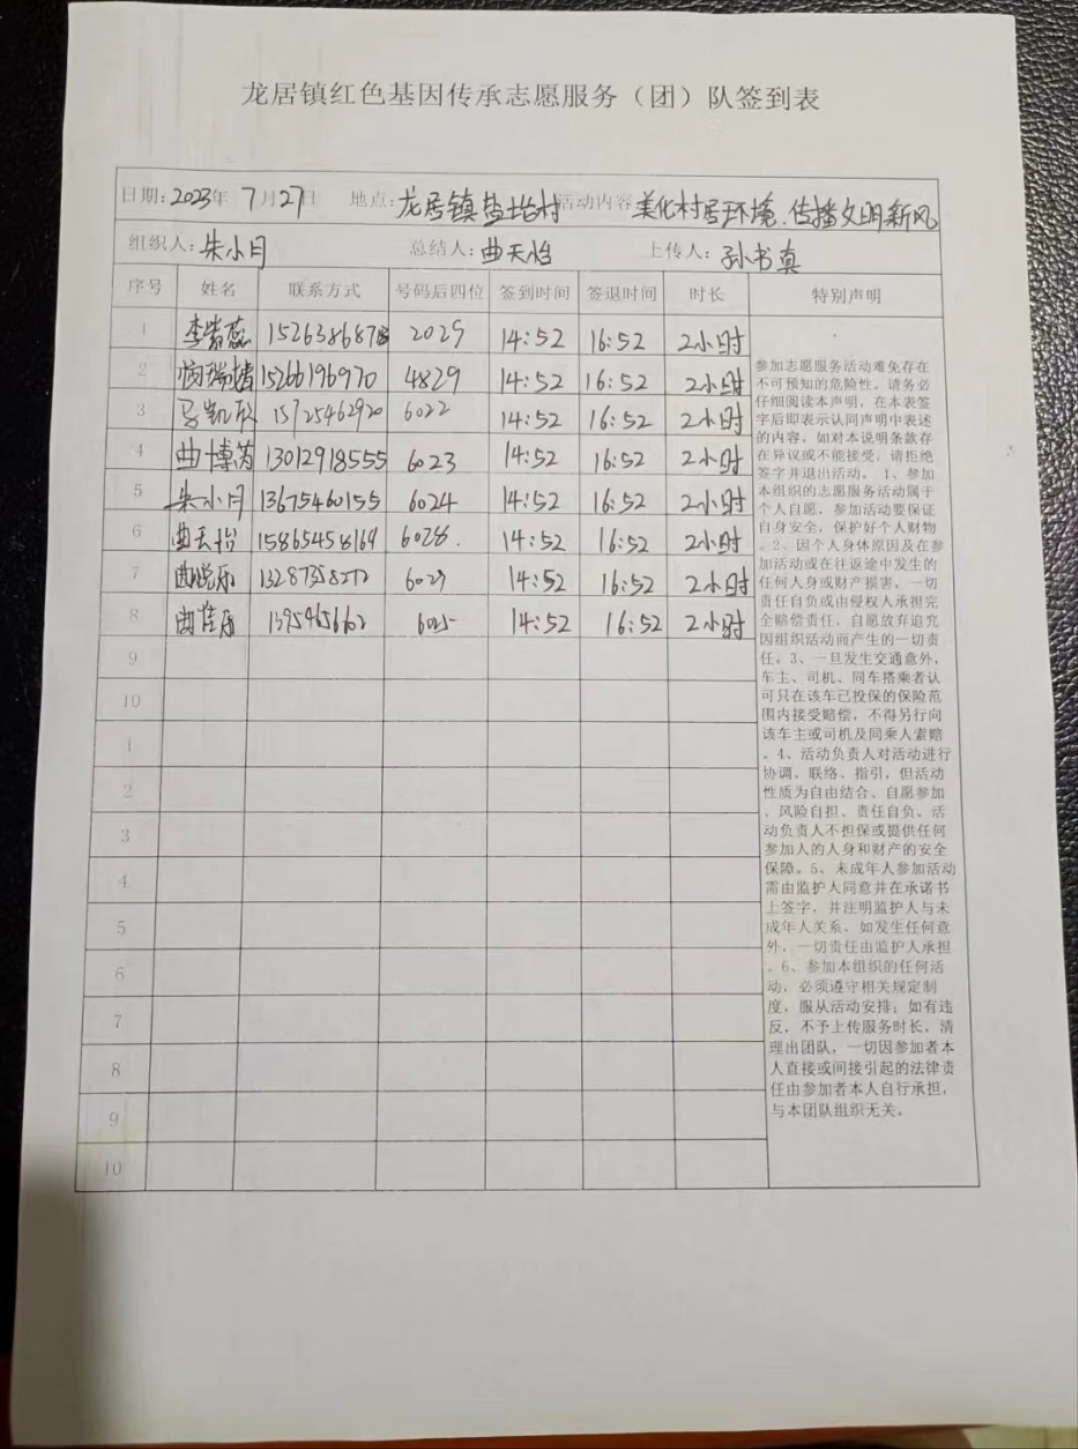 龙居镇红色基因传承志愿服务（团）队签到表
日期: 2023年 7月27日 地点: 龙居镇盐坨村 活动内容 美化村居环境、传播文明新风
组织人: 朱小月 总结人: 曲天怡 上传人: 孙书真
序号 姓名 联系方式 号码后四位 签到时间 签退时间 时长 特别声明
1 李紫蕊 2029 14:52 16:52 2小时
2 15266196970 4829 14:52 16:52 2小时
3 马凯欣 15725462920 6022 14:52 16:52 2小时
4 曲博芮 13012918555 6023 14:52 16:52 2小时
5 朱小月 13675460155 6024 14:52 16:52 2小时
6 曲天怡 15865458169 6028. 14:52 16:52 2小时
7 曲悦乐 13287358272 6029 14:52 16:52 2小时
8 曲佳乐 14:52 16:52 2小时
9
10
1
2
3
4
5
6
7
8
9
10
参加志愿服务活动难免存在
不可预知的危险性，请务必
仔细阅读本声明，在本表签
字后即表示认同声明中表述
的内容，如对本说明条款存
在异议或不能接受，请拒绝
签字并退出活动。1、参加
本组织的志愿服务活动属于
个人自愿，参加活动要保证
自身安全，保护好个人财物
。2、因个人身体原因及在参
加活动或在往返途中发生的
任何人身或财产损害，一切
责任自负或由侵权人承担完
全赔偿责任，自愿放弃追究
因组织活动而产生的一切责
任。3、一旦发生交通意外，
车主、司机、同车搭乘者认
可只在该车已投保的保险范
围内接受赔偿，不得另行向
该车主或司机及同乘人索赔
。4、活动负责人对活动进行
协调、联络、指引，但活动
性质为自由结合、自愿参加
、风险自担、责任自负。活
动负责人不担保或提供任何
参加人的人身和财产的安全
保障。5、未成年人参加活动
需由监护人同意并在承诺书
上签字，并注明监护人与未
成年人关系，如发生任何意
外，一切责任由监护人承担
。6、参加本组织的任何活
动，必须遵守相关规定制
度，服从活动安排；如有违
反，不予上传服务时长，清
理出团队，一切因参加者本
人直接或间接引起的法律责
任由参加者本人自行承担，
与本团队组织无关。